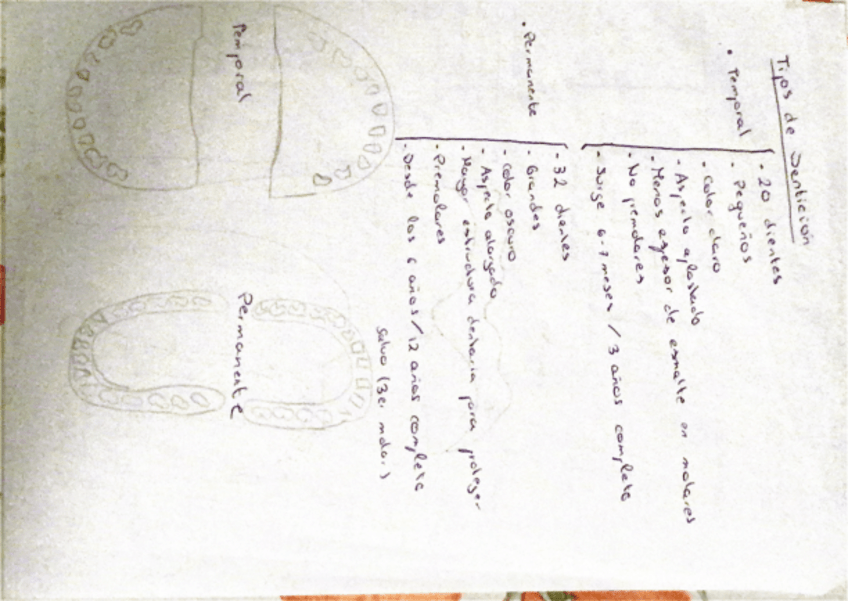 Tipos de Dentición
• Temporal
- 20 dientes
- Pequeños
- Color claro
- Aspecto aplastado
- Menos espesor de esmalte en molares
- No premolares
- Surge 6-7 meses / 3 años completa
• Permanente
- 32 dientes
- Grandes
- Color oscuro
- Aspecto alargado
- Mayor estructura dentaria para proteger
- Premolares
- Desde los 6 años / 12 años completa
salvo (3er molar)
Temporal
Permanente